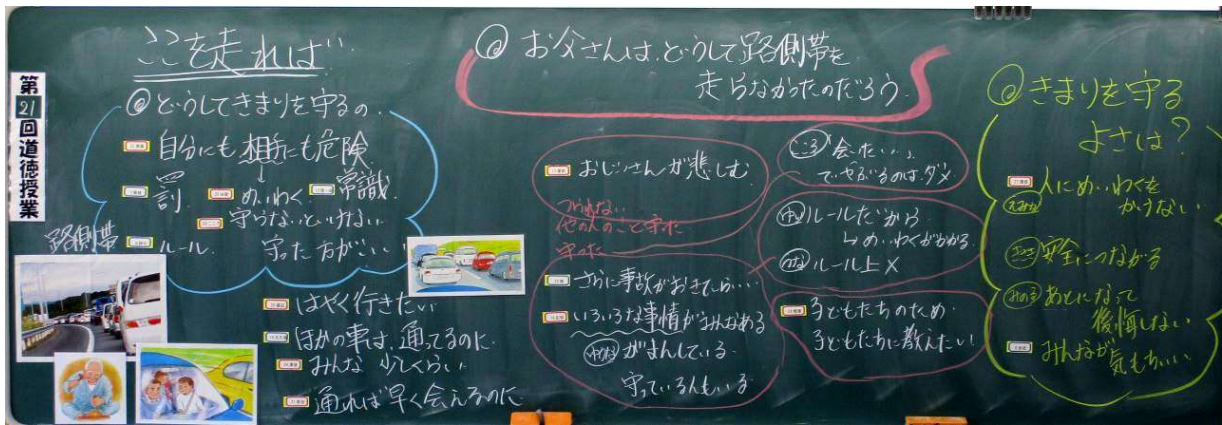 第21回道徳授業
ここを走れば
どうしてきまりを守るの
自分にも相手にも危険
罰
めいわく
常識
守らないといけない
ルール
守った方がいい
路側帯
はやく行きたい
ほかの車は、通ってるのに
みんな 少しくらい
通れば早く会えるのに
お父さんは、どうして路側帯を
走らなかったのだろう
おじいさんが悲しむ
つられない
他の人のこと守った
守った
さらに事故がおきてしまい…
いろいろな事情がみんなある
がまんしている
守っている人もいる
会いたい、、
でやぶるのは、ダメ
ルールだから
めいわくがかかる
ルール上×
子どもたちのため
子どもたちに教えたい
きまりを守る
よさは?
人にめいわくを
かけない
安全につながる
あとになって
後悔しない
みんなが
気もちいい